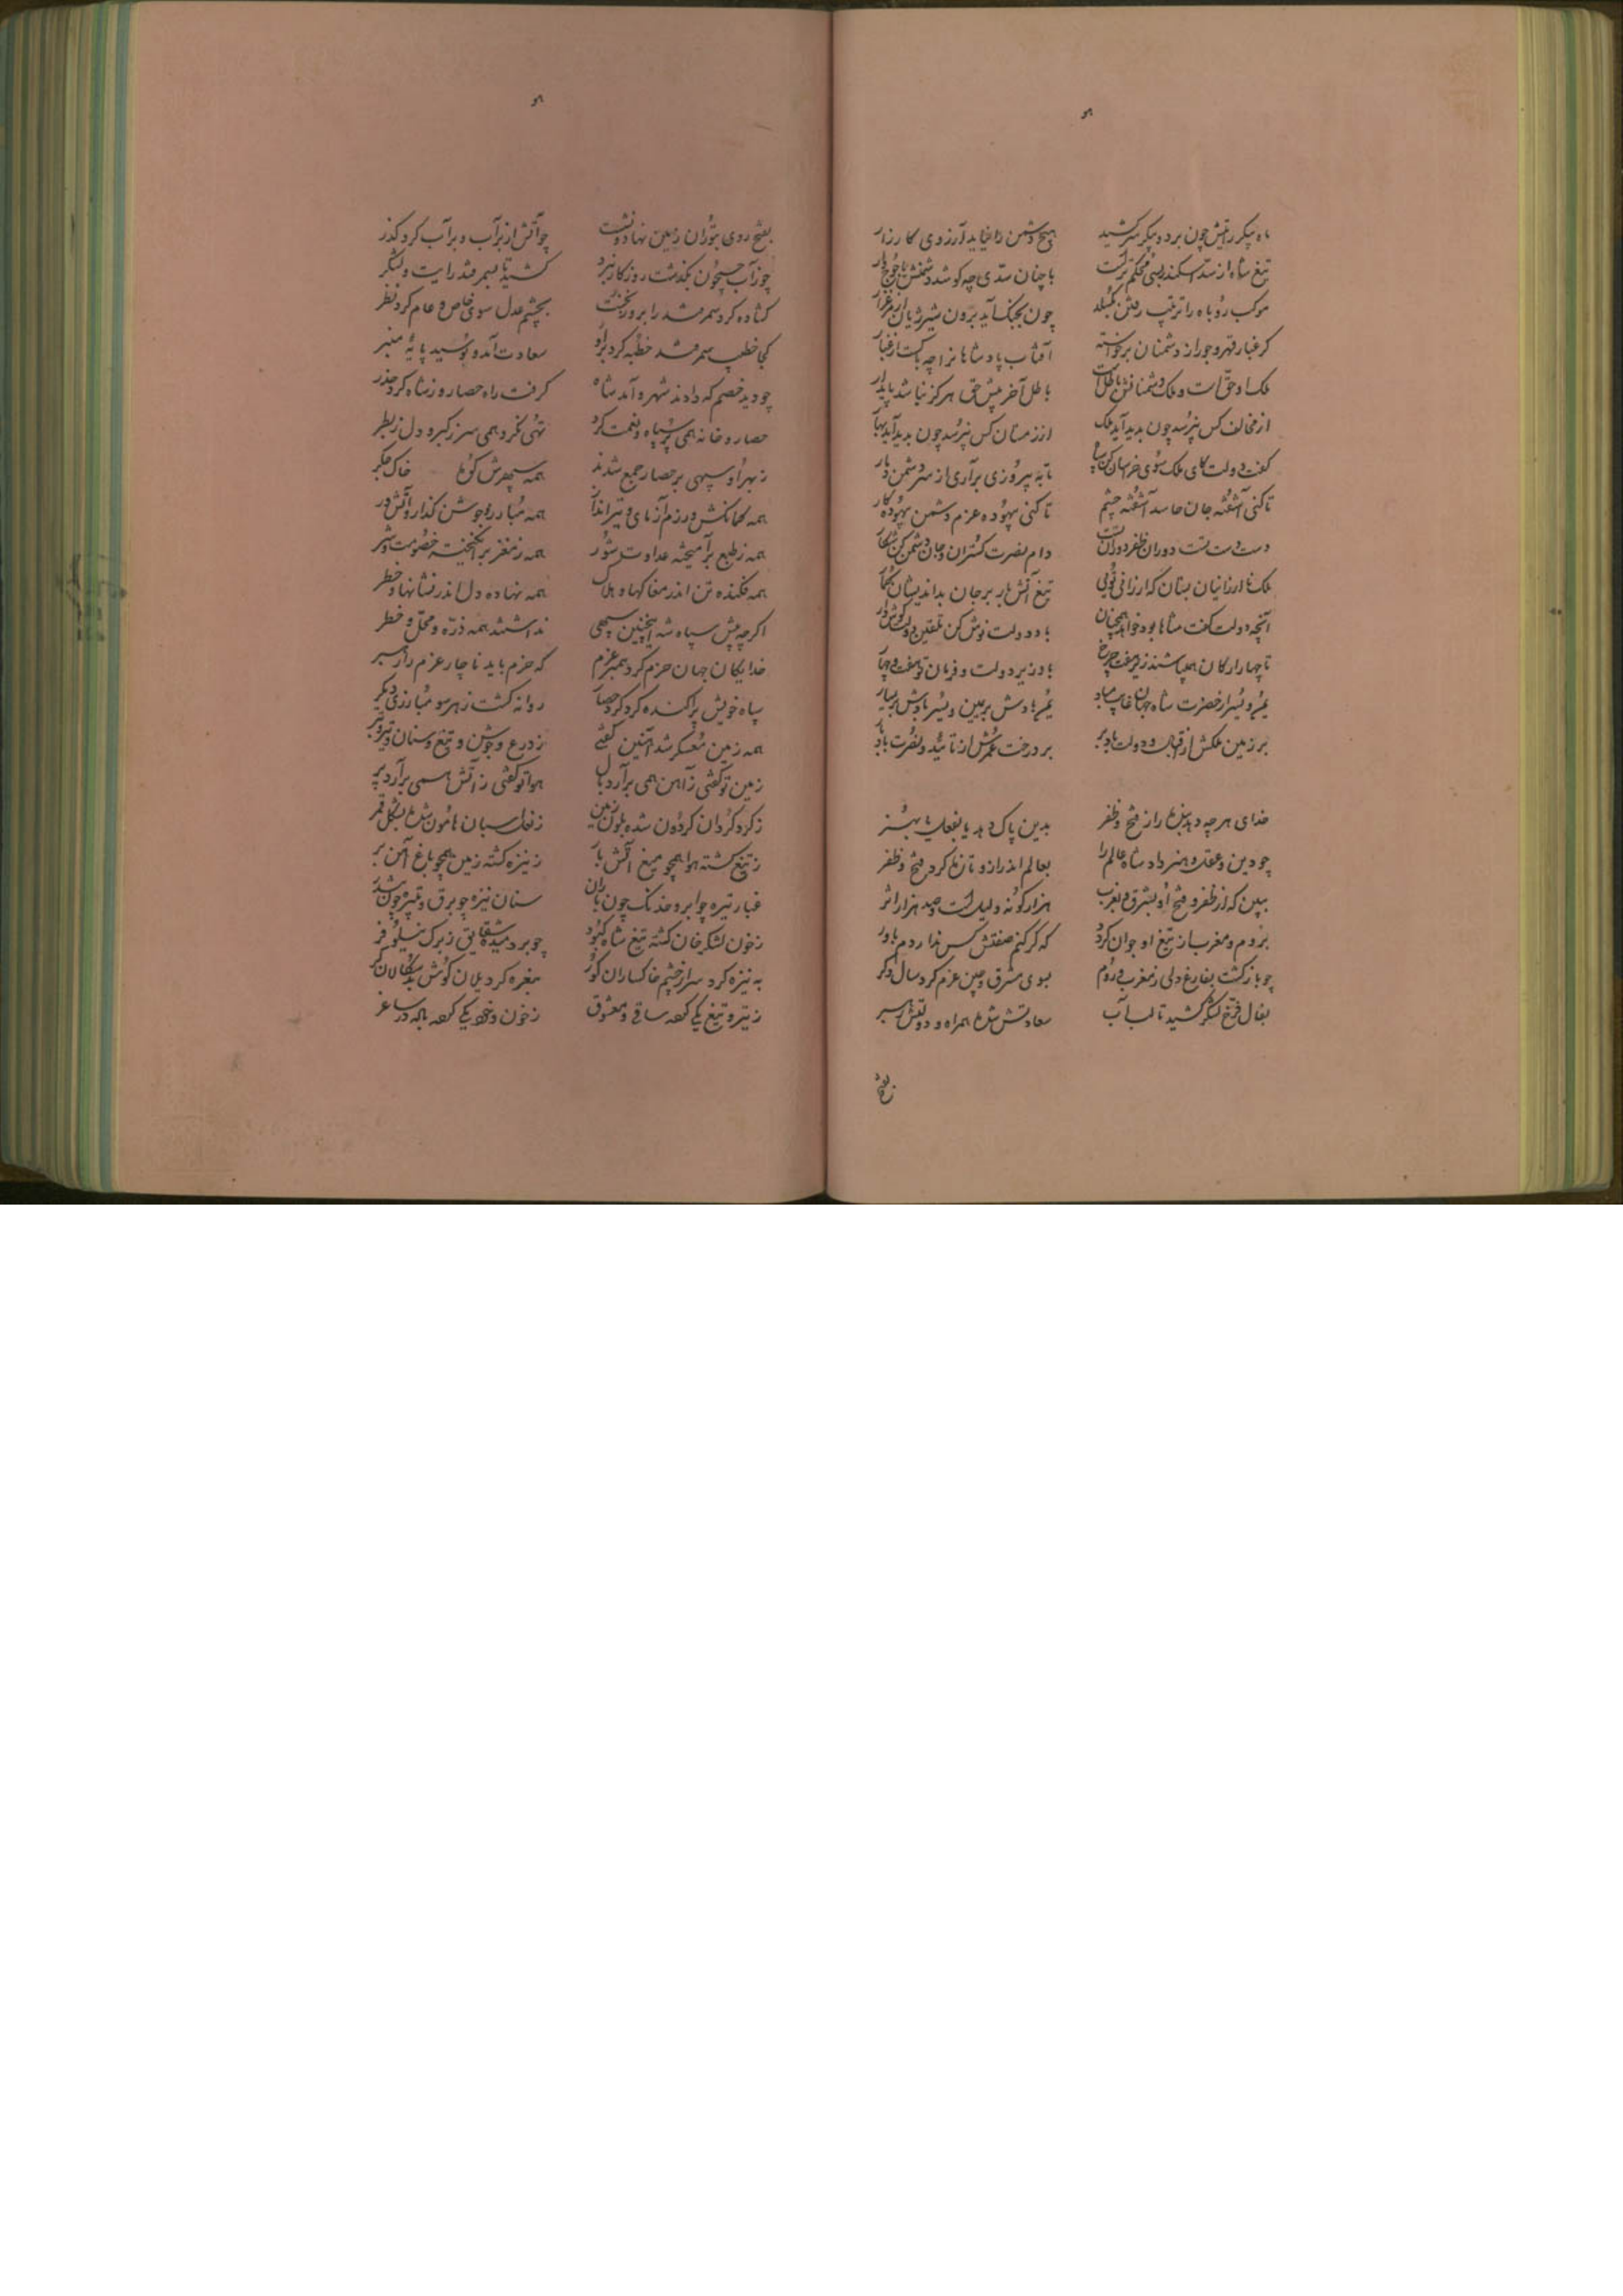 هو
ماه پیکر رایتش چون بر دو پیکر سر کشید هیچ دشمن را نیاید آرزوی کارزار
تیغ شاه از سد اسکندر بسی محکم‌ترست با چنان سدی چه کوشد دشمن یاجوج وار
موکب روباه را ترتیب رفتن بگسلد چون بجنگ آید برون شیر ژیان از مرغزار
گر غبار قهر و جور از دشمنان برخواسته آفتاب پادشاهانرا چه باکست از غبار
ملک او حق است و ملک دشمنانش باطلست باطل آخر پیش حق هرگز نباشد پایدار
از مخالف کس نپرسد چون بدید آید ملک از زمستان کس نپرسد چون بدید آید بهار
گفت دولت کای ملک سوی خراسان کش سپاه تا به پیروزی برآری از سر دشمن دمار
تا کنی آشفته جان حاسد آشفته چشم تا کنی بیهوده عزم دشمن بیهوده کار
دست دست تست دوران ظفر دوران تست دام نصرت گستران و جان دشمن کن شکار
ملک ناارزانیان بستان که ارزانی تویی تیغ آتش بار بر جان بداندیشان گمار
آنچه دولت گفت شاها بود خواهد همچنان باده دولت نوش کن تلقین دولت گوش دار
تا چهار ارکان همی باشند زیر هفت چرخ باد زیر دولت و فرمان تو هفت و چهار
یمن و یسر از حضرت شاه جهان غایب مباد یمن بادش بر یمین و یسر بادش بر یسار
بر زمین ملکش از اقبال و دولت باد بر بر درخت عمرش از تأیید و نصرت باد بار
خدای هر چه دهد بنده را ز فتح و ظفر بدین پاک دهد یا بعقل یا بهنر
چو دین و عقل و هنر داد شاه عالم را بعالم اندر ازو تازه کرد فتح و ظفر
ببین که از ظفر و فتح او بشرق و بغرب هزار گونه دلیل است و صد هزار اثر
بروم و مغرب از تیغ او جوان کرد که گر کنم صفتش کس ندارد باور
چو باز گشت بفارغ دلی ز مغرب و روم بسوی مشرق و چین عزم کرد سال دگر
بفال فرخ لشکر کشید تا لب آب سعادتش شده همراه و دولتش رهبر
هو
بفتح روی بتوران زمین نهاد و نشست چو آتش از بر آب و بر آب کرد گذر
چو ز آب جیحون بگذشت روزگار نبرد کشید تا بسمرقند رایت و لشکر
گشاده کرد سمرقند را بروز نخست بچشم عدل سوی خاص و عام کرد نظر
کجا خطیب سمرقند خطبه کرد برو سعادت آمد و بوسید پایه منبر
چو دید خصم که دادند شهر و آمد شاه گرفت راه حصار و ز شاه کرد حذر
حصار و خانه همی پر سپاه و نعمت کرد تهی نکرد همی سر ز کبر و دل ز بطر
ز بهر او سپهی بر حصار جمع شدند همه سپهرش خاک جگر
همه کمانکش و رزم آزمای و تیرانداز همه مبارز و جوشن گذار و آتش در
همه ز طبع برآمیخته عداوت و شور همه ز مغز برانگیخته خصومت و شر
همه فکنده تن اندر مغاکها و هلاک همه نهاده دل اندر نشانها و خطر
اگرچه پیش سپاه شه اینچنین سپهی نداشتند همه ذره و محل و خطر
خدایگان جهان حزم کرد همبر عزم که حزم باید ناچار عزم را رهبر
سپاه خویش پراکنده کرد گرد حصار روانه گشت ز هر سو مبارزی دیگر
همه زمین معسکر شد آهنین گفتی ز درع و جوشن و تیغ و سنان و تیر و تبر
زمین تو گفتی ز آهن همی برآرد بال هوا تو گفتی ز آتش همی برآرد پر
ز گرد گردان گردون شده بلون زمین ز نعل اسبان هامون شده بشکل قمر
ز تیغ گشته هوا همچو میغ آتش بار ز نیزه گشته زمین همچو باغ آهن بر
غبار تیره چو ابر و خدنگ چون باران سنان نیزه چو برق و تبیره چون تندر
ز خون لشکر خان گشته تیغ شاه کبود چو بر دمیده شقایق ز برگ نیلوفر
به نیزه کرد سر از خشم خاکساران گور بنعره کرد یلان گوش بدسگالان کر
ز تیر و تیغ یکی کرده ساقی و معشوق ز خون و خود یکی کرده باده و ساغر